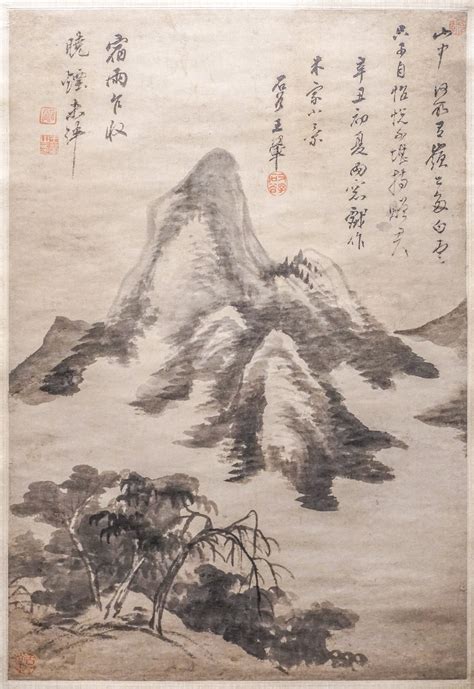 山中何所有嶺上多白雲
只可自怡悅不堪持贈君
辛丑初夏雨窓戲作
米家小景
石谷王翬
宿雨乍收
曉煙未泮